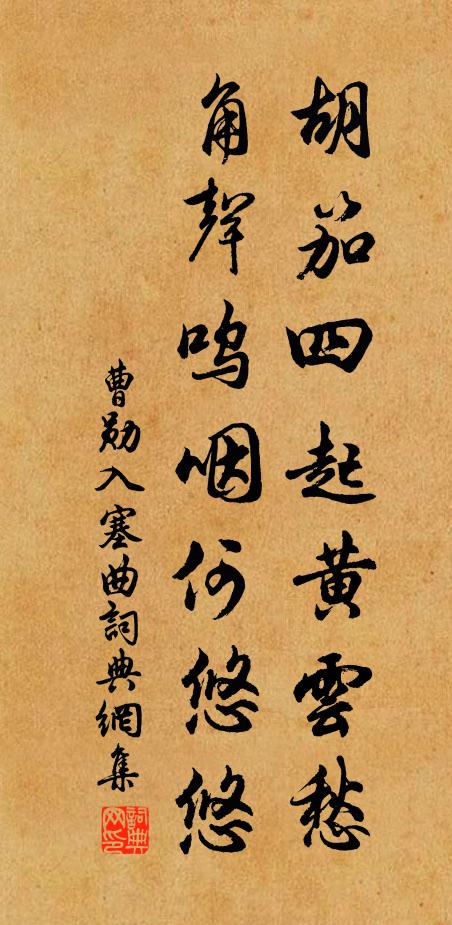 胡笳四起黄雲愁
角聲嗚咽何悠悠
曹勛入塞曲詞典網集
詞典網印